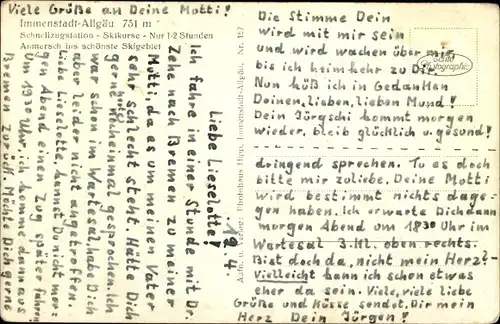 Viele Grüße an Deine Motti!
Immenstadt-Allgäu 731 m
Schnellzugstation - Skikurse - Nur 1-2 Stunden
Anmarsch ins schönste Skigebiet
19.4.
Liebe Lieselotte!
Ich fahre in einer Stunde mit Dr.
Zehe nach Bremen zu meiner
Motti, da es um meinen Vater
sehr schlecht steht. Hätte Dich
gerne noch einmal gesprochen. Ich
war schon im Wartesaal, habe Dich
aber leider nicht angetroffen.
Liebe Lieselotte, kannst Du nicht mor-
gen Abend einen Zug später fahren.
Um 1930 Uhr, ich komme dann aus
Bremen zurück. Möchte Dich gerne
dringend sprechen. Tu es doch
bitte mir zuliebe. Deine Motti
wird bestimmt nichts dage-
gen haben. Ich erwarte Dich dann
morgen Abend um 1830 Uhr im
Wartesaal 3. Kl. oben rechts.
Bist doch da, nicht mein Herz?-
Vielleicht kann ich schon etwas
eher da sein. Viele, viele liebe
Grüße und Küsse sendet Dir mein
Herz Dein Jürgen!
Die Stimme Dein
wird mit mir sein
und wird wachen über mir,
bis ich heimkehr zu Dir.
Nun küß ich in Gedanken
Deinen, lieben, lieben Mund!
Dein Jürgschi kommt morgen
wieder, bleib glücklich u. gesund!
Echte
Photographie
Immenstadt-Allgäu. Nr. 187